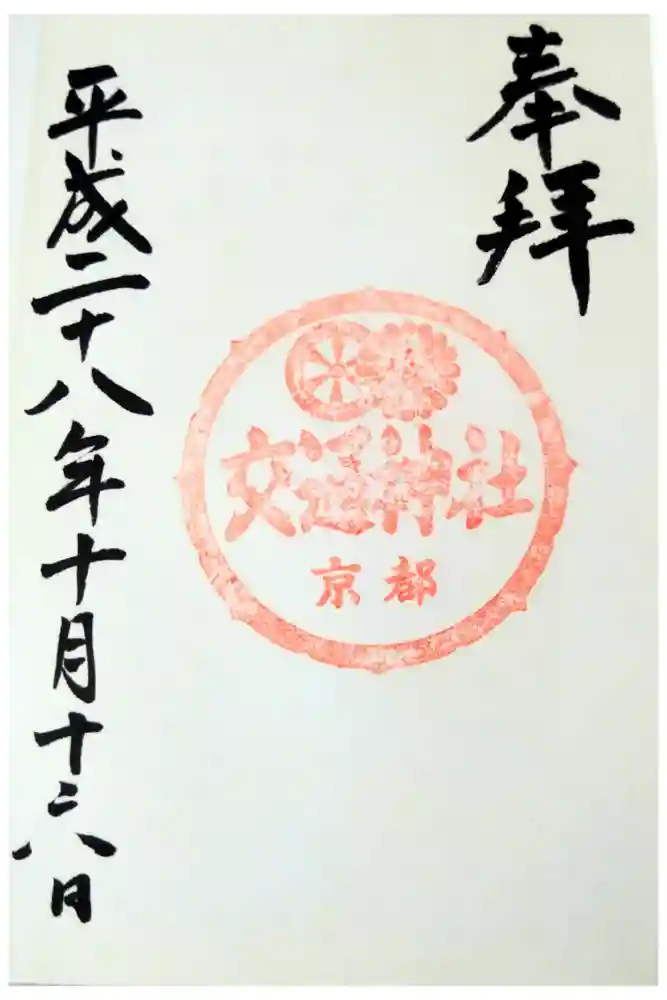 奉拝
交通神社
京都
平成二十八年十月十六日